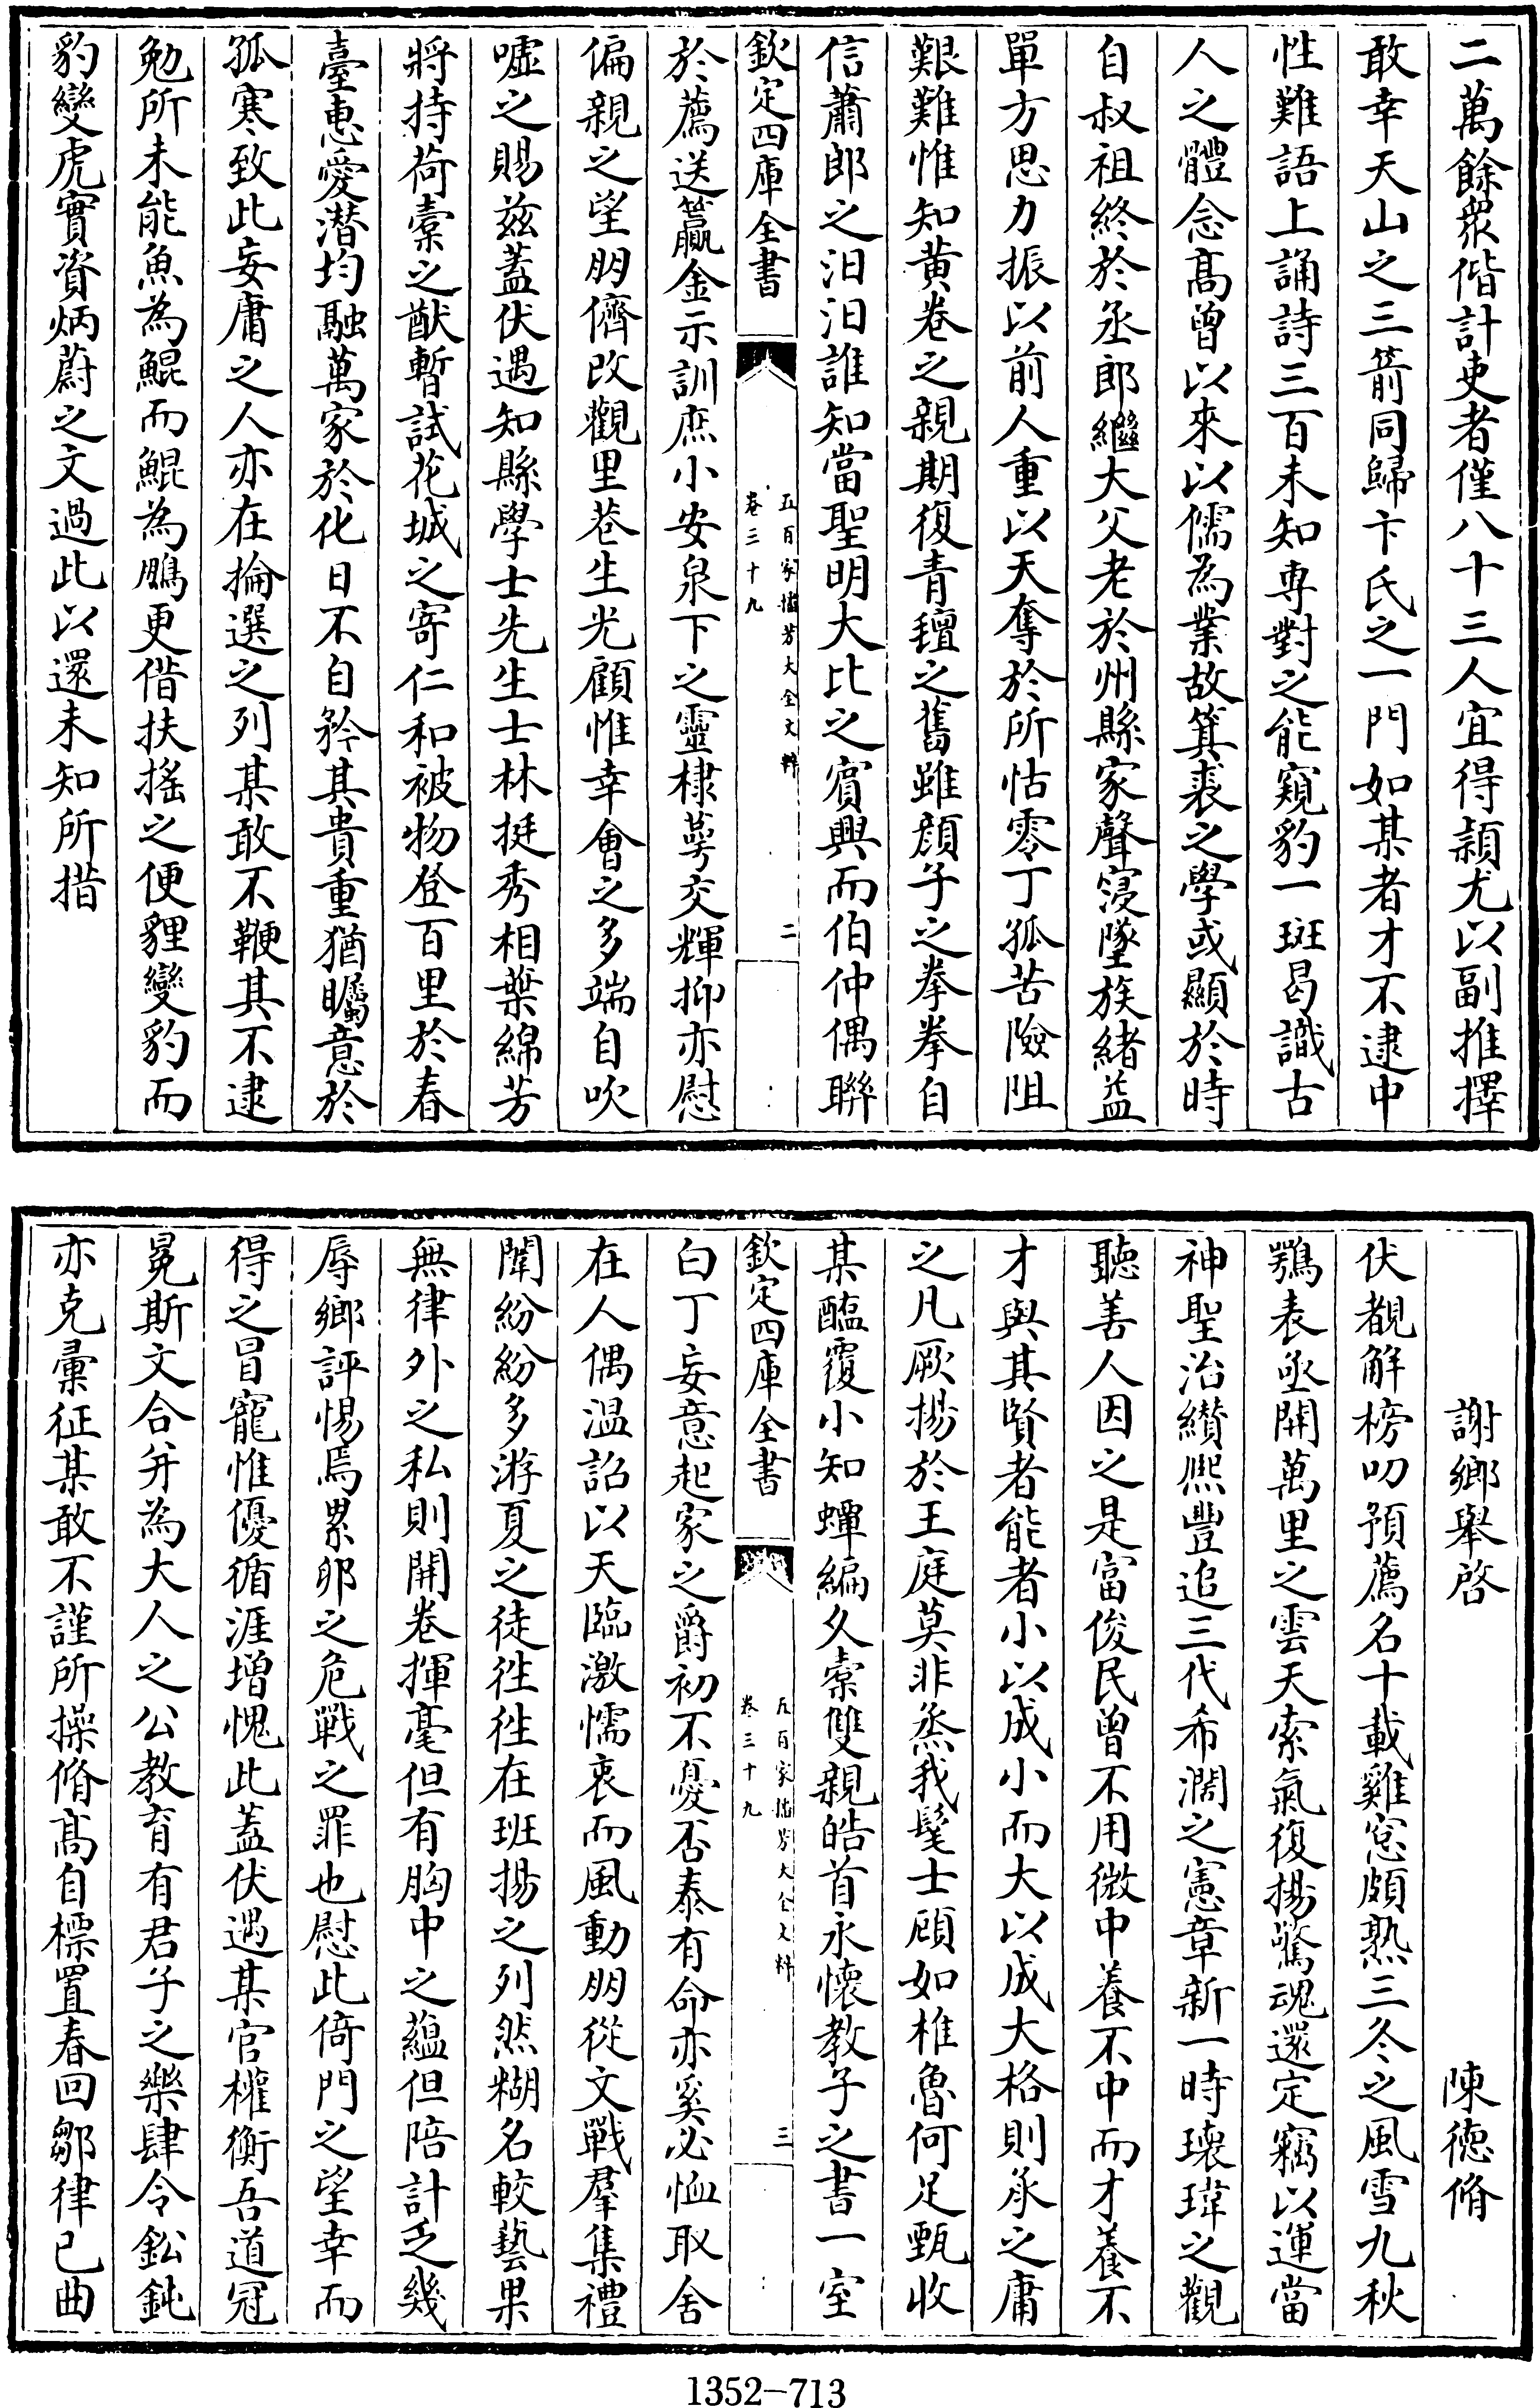 二萬餘衆偕計吏者僅八十三人宜得穎尤以副推擇
敢幸天山之三箭同歸卞氏之一門如某者才不逮中
性難語上誦詩三百未知専對之能窺豹一斑曷識古
人之體念髙曾以來以儒為業故箕裘之學或顯於時
自叔祖終於丞郎繼大父老於州縣家聲寖墜族緒益
單方思力振以前人重以天奪於所怙零丁孤苦險阻
艱難惟知黄卷之親期復青氊之舊雖顔子之拳拳自
信蕭郎之汨汨誰知當聖明大比之賔興而伯仲偶聯
欽定四庫全書
五百家播芳大全文粹
卷三十九
二
於薦送籯金示訓庶小安泉下之靈棣萼交輝抑亦慰
偏親之望朋儕改觀里巷生光顧惟幸會之多端自吹
噓之賜兹蓋伏遇知縣學士先生士林挺秀相葉綿芳
將持荷槖之猷暫試花城之寄仁和被物登百里於春
臺恵愛潛均融萬家於化日不自矜其貴重猶矚意於
孤寒致此妄庸之人亦在掄選之列某敢不鞭其不逮
勉所未能魚為鯤而鯤為鵬更偕扶摇之便貍變豹而
豹變虎實資炳蔚之文過此以還未知所措
謝鄉舉啓
陳徳脩
伏覩解榜叨預薦名十載雞窓頗熟三冬之風雪九秋
鶚表亟開萬里之雲天索氣復揚驚魂還定竊以運當
神聖治纉熈豐追三代希濶之憲章新一時瓌瑋之觀
聽善人因之是富俊民曾不用微中養不中而才養不
才與其賢者能者小以成小而大以成大格則承之庸
之凡厥揚於王庭莫非烝我髦士顧如椎魯何足甄收
某醯覆小知蟫編久槖雙親皓首永懷教子之書一室
欽定四庫全書
五百家播芳大全文粹
卷三十九
三
白丁妄意起家之爵初不憂否泰有命亦奚必恤取舍
在人偶温詔以天臨激懦衷而風動朋從文戰羣集禮
闈紛紛多游夏之徒徃徃在班揚之列然糊名較藝果
無律外之私則開卷揮毫但有胸中之藴但陪計乏幾
辱鄉評惕焉累卵之危戰之罪也慰此倚門之望幸而
得之冒寵惟優循涯增愧此蓋伏遇某官權衡吾道冠
冕斯文合并為大人之公教育有君子之樂肆令鈆鈍
亦克彚征某敢不謹所操脩髙自標置春回鄒律已曲
1352-713